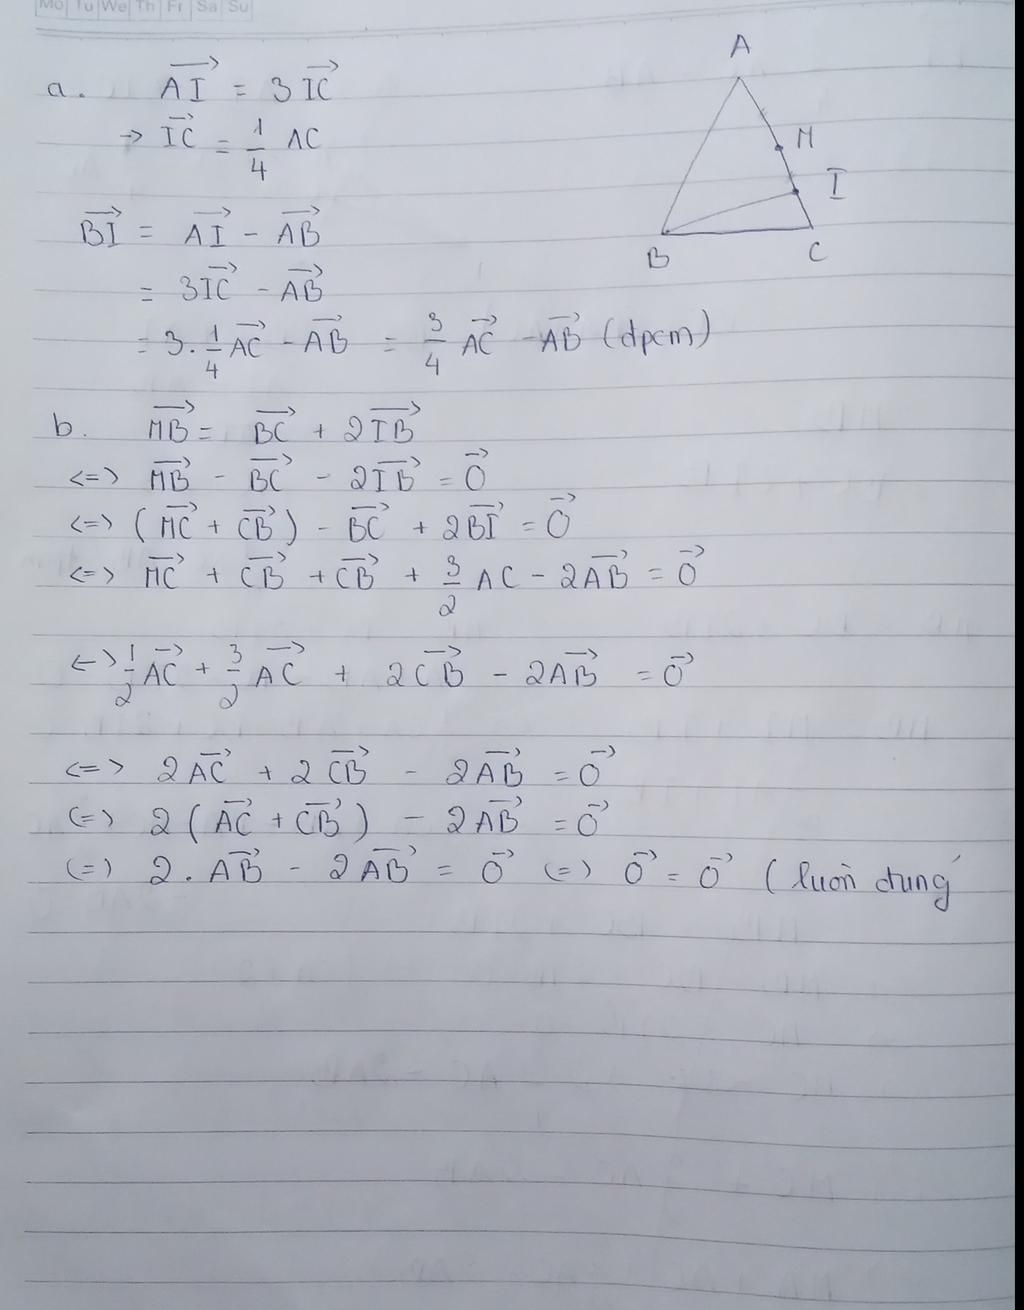 Mo Tu We Th Fr Sa Su
a. $\overrightarrow{AI} = 3\overrightarrow{IC}$
→ $\overrightarrow{IC} = \frac{1}{4} AC$
$\overrightarrow{BI} = \overrightarrow{AI} - \overrightarrow{AB}$
$= 3\overrightarrow{IC} - \overrightarrow{AB}$
$= 3 \cdot \frac{1}{4}\overrightarrow{AC} - \overrightarrow{AB} = \frac{3}{4}\overrightarrow{AC} - \overrightarrow{AB}$ (dpcm)
A
M
I
B
C
b. $\overrightarrow{MB} = \overrightarrow{BC} + 2\overrightarrow{IB}$
<=> $\overrightarrow{MB} - \overrightarrow{BC} - 2\overrightarrow{IB} = \overrightarrow{0}$
<=> $(\overrightarrow{MC} + \overrightarrow{CB}) - \overrightarrow{BC} + 2\overrightarrow{BI} = \overrightarrow{0}$
<=> $\overrightarrow{MC} + \overrightarrow{CB} + \overrightarrow{CB} + \frac{3}{2} AC - 2\overrightarrow{AB} = \overrightarrow{0}$
<-> $\frac{1}{2}\overrightarrow{AC} + \frac{3}{2}\overrightarrow{AC} + 2\overrightarrow{CB} - 2\overrightarrow{AB} = \overrightarrow{0}$
<=> $2\overrightarrow{AC} + 2\overrightarrow{CB} - 2\overrightarrow{AB} = \overrightarrow{0}$
(=) $2(\overrightarrow{AC} + \overrightarrow{CB}) - 2\overrightarrow{AB} = \overrightarrow{0}$
(=) $2 . \overrightarrow{AB} - 2\overrightarrow{AB} = \overrightarrow{0}$ (=) $\overrightarrow{0} = \overrightarrow{0}$ (luôn đúng